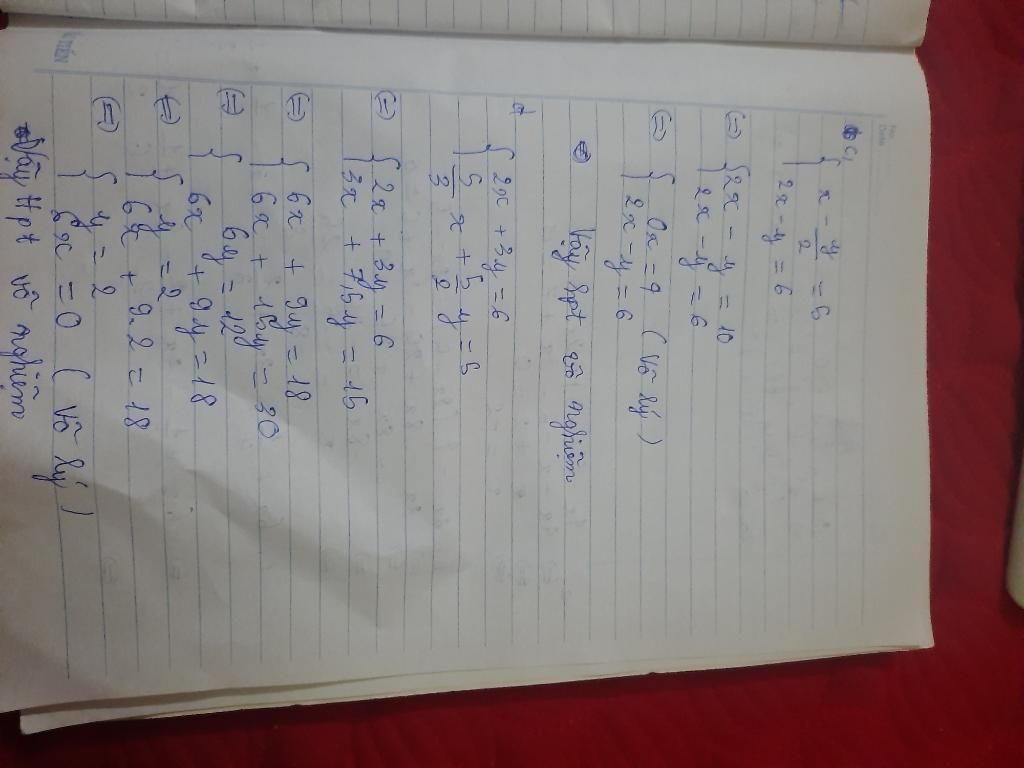 c,
{ x - y/2 = 5
2x - y = 6
(=) { 2x - y = 10
2x - y = 6
(=) { 0x = 4 ( Vô lý )
2x - y = 6
Vậy hpt vô nghiệm
d, { 2x + 3y = 6
5/3 x + 5/2 y = 5
(=) { 2x + 3y = 6
3x + 7,5y = 15
(=) { 6x + 9y = 18
6x + 15y = 30
(=) { 6y = 12
6x + 9y = 18
(=) { y = 2
6x + 9.2 = 18
(=) { y = 2
6x = 0 ( vô lý )
Vậy Hpt vô nghiệm